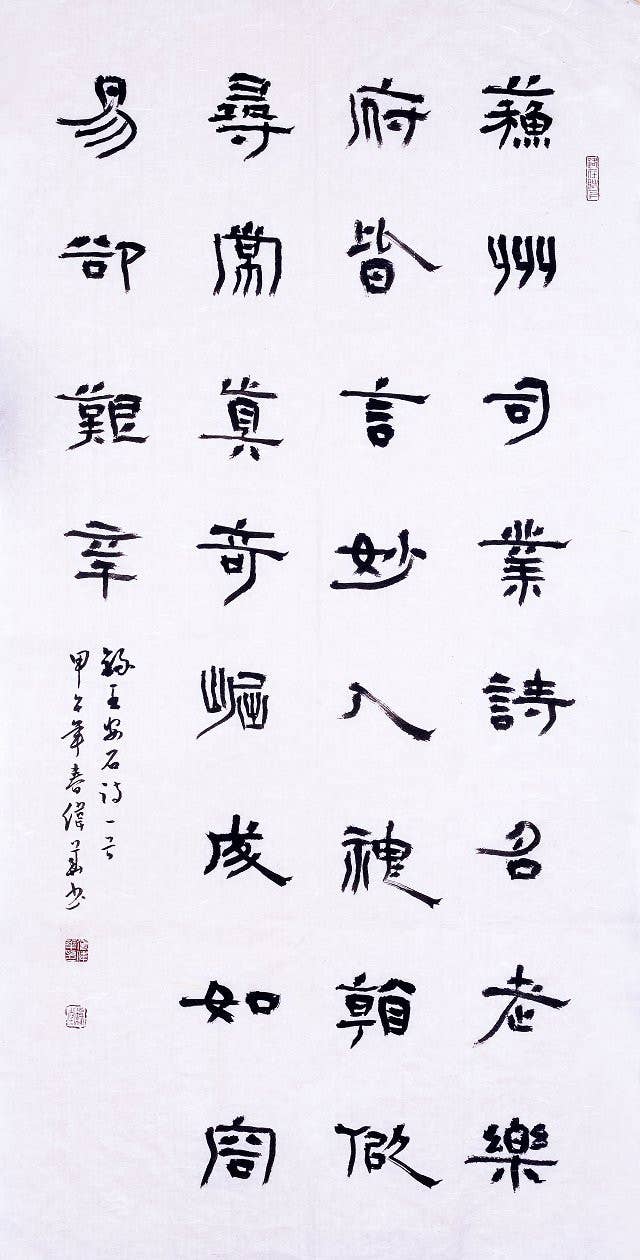 蘇州司業詩名老樂
府皆言妙入神看似
尋常真奇崛成如容
易卻艱辛
錄王安石詩一首
甲午年春偉華書